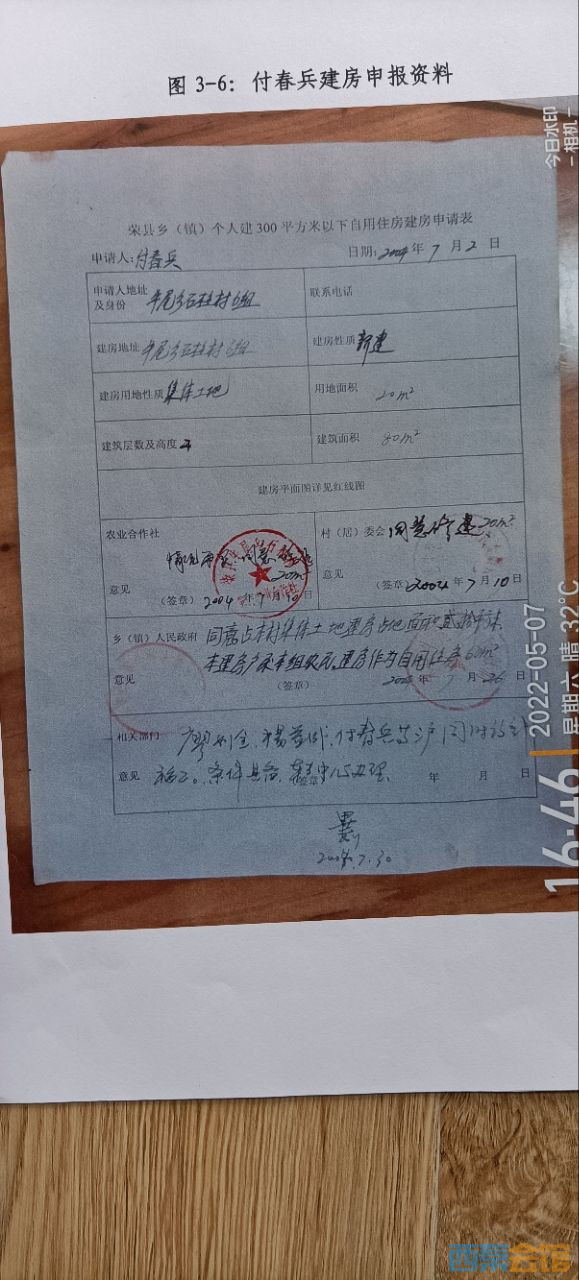 图 3-6：付春兵建房申报资料
今日水印
-相机-
荣县乡（镇）个人建300平方米以下自用住房建房申请表
申请人：付春兵 日期：2004年7月2日
申请人地址及身份 牟尾乡石柱村6组 联系电话
建房地址 牟尾乡石柱村6组 建房性质 新建
建房用地性质 集体土地 用地面积 20m²
建筑层数及高度 建筑面积 80m²
建房平面图详见红线图
农业合作社 村（居）委会 同意修建20m²
情况 同意
20m²
意见 意见
（签章）2004年7月10日 （签章）2004年7月10日
乡（镇）人民政府 同意占本村集体土地建房占地面积贰拾平米
本组农民，建房作为自用住房 60m²
意见 （签章） 年7月26日
相关部门 付春兵
意见 条件具备 办理 年 月 日
2004.7.30
2022-05-07
星期六 晴 32°C
16:46
西秦会馆